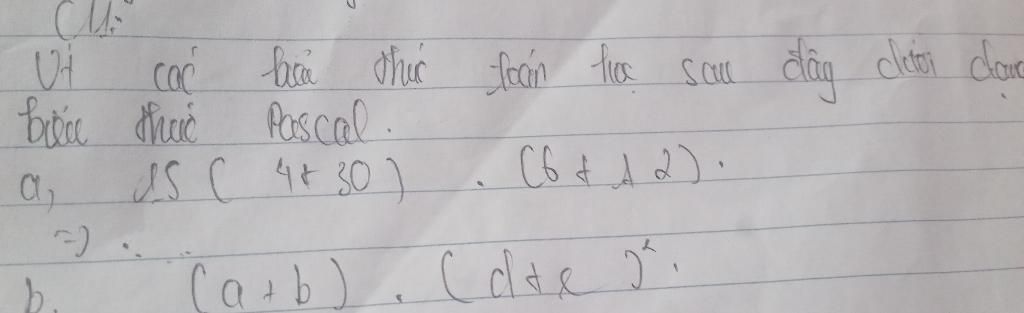 C4:
Viết các biểu thức toán học sau đây dưới dạng
biểu thức Pascal.
a, 15 ( 4 + 30 ) . (6 + 12).
=) . ...
b. (a + b) . (d + e )².